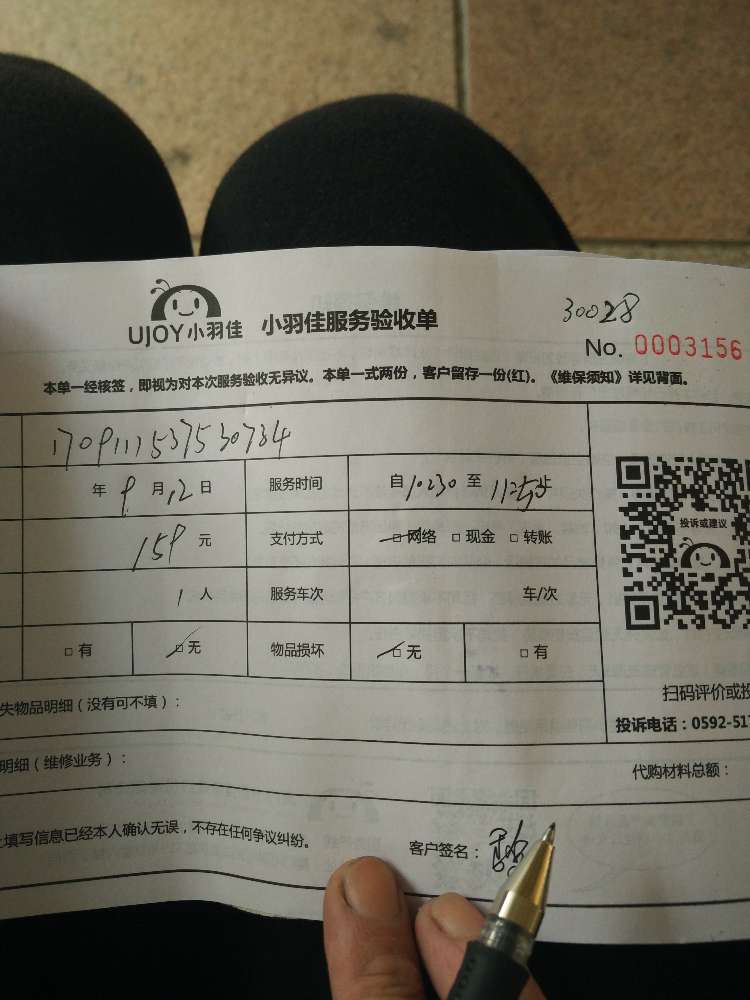 30028
UJOY小羽佳 小羽佳服务验收单
No. 0003156
本单一经核签，即视为对本次服务验收无异议。本单一式两份，客户留存一份(红)。《维保须知》详见背面。
1709111537530734
年 9 月 12 日 服务时间 自 10:30 至 11:25 止
159 元 支付方式 网络 现金 转账
投诉或建议
1 人 服务车次 车/次
有 无 物品损坏 无 有
失物品明细（没有可不填）：
扫码评价或投
投诉电话：0592-517
明细（维修业务）：
代购材料总额：
填写信息已经本人确认无误，不存在任何争议纠纷。
客户签名：